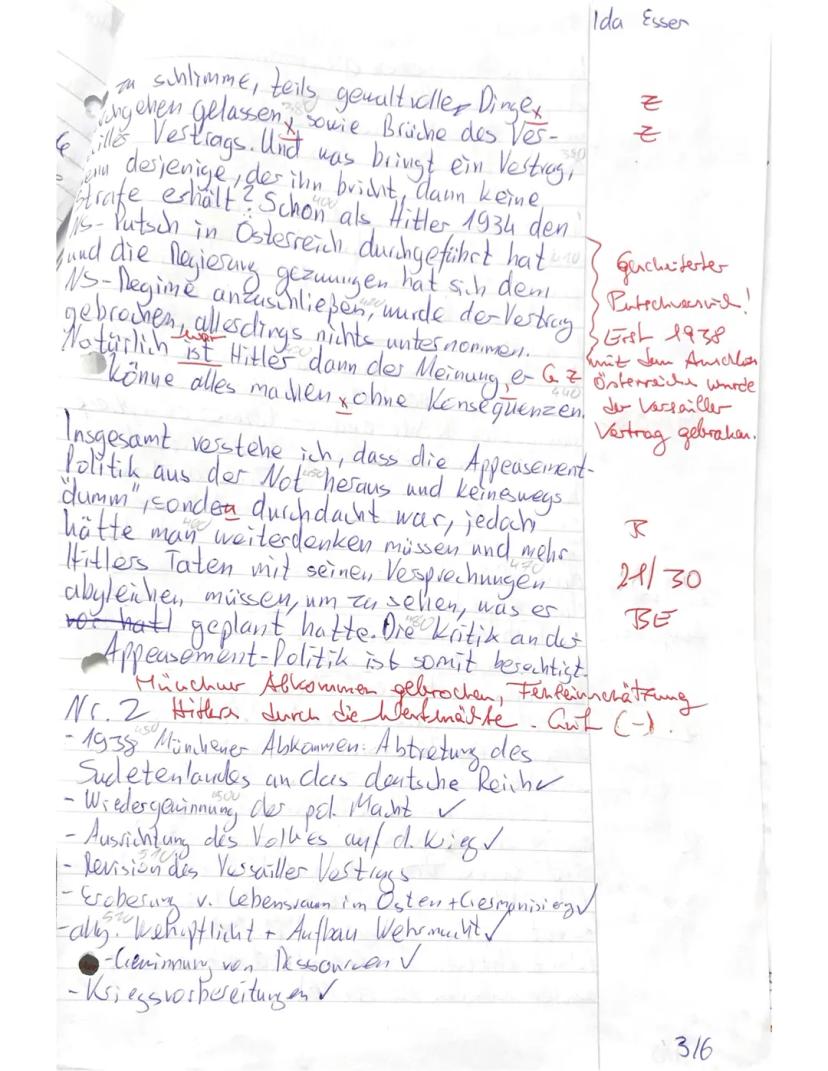 Ida Esser
zu schlimme, teils gewaltvolle, Dinge
gehen gelassen, sowie Brüche des Ver-
Vertrags. Und was bringt ein Vertrag,
desjenige, der ihn bricht, dann keine
Strafe erhält? Schon als Hitler 1934 den
NS-Putsch in Österreich durchgeführt hat
und die Regierung gezwungen hat sich dem
NS-Regime anzuschließen, wurde der Vertrag
gebrochen, allerdings nichts unternommen.
Natürlich ist Hitler dann der Meinung, er
könne alles machen x ohne Konsequenzen.
Z
Z
Gescheiterter
Putschversuch!
Erst 1938
mit dem Anschluss
Österreichs wurde
der Versailler
Vertrag gebrochen.
war
G Z
Insgesamt verstehe ich, dass die Appeasement-
Politik aus der Not heraus und keineswegs
"dumm", sonden durchdacht war, jedoch
hätte man weiterdenken müssen und mehr
Hitlers Taten mit seinen Versprechungen
abgleichen müssen, um zu sehen, was er
vor hatt geplant hatte. Die Kritik an der
Appeasement-Politik ist somit berechtigt.
R
21/30
BE
Münchner Abkommen gebrochen, Fehleinschätzung
Hitlers durch die Westmächte. Gut (-).
Nr. 2
- 1938 Münchener Abkommen: Abtretung des
Sudetenlandes an das deutsche Reich ✓
- Wiedergewinnung der pol. Macht ✓
- Ausrichtung des Volkes auf d. Krieg ✓
- Revision des Versailler Vertrags
- Eroberung v. Lebensraum im Osten + Germanisierg ✓
- allg. Wehrpflicht + Aufbau Wehrmacht ✓
- Gewinnung von Ressourcen ✓
- Kriegsvorbereitungen ✓
3/6